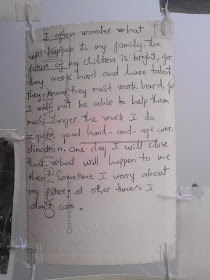 I often wonder what
will happen to my family. The
future of my children is bright, for
they work hard and have talent
They know they must work hard, for
I will not be able to help them
much longer. The work I do
requires good hand- and- age coor-
dination. One day I will close
that. What will happen to me
then? Sometimes I worry about
my future; at other times I
don't care.